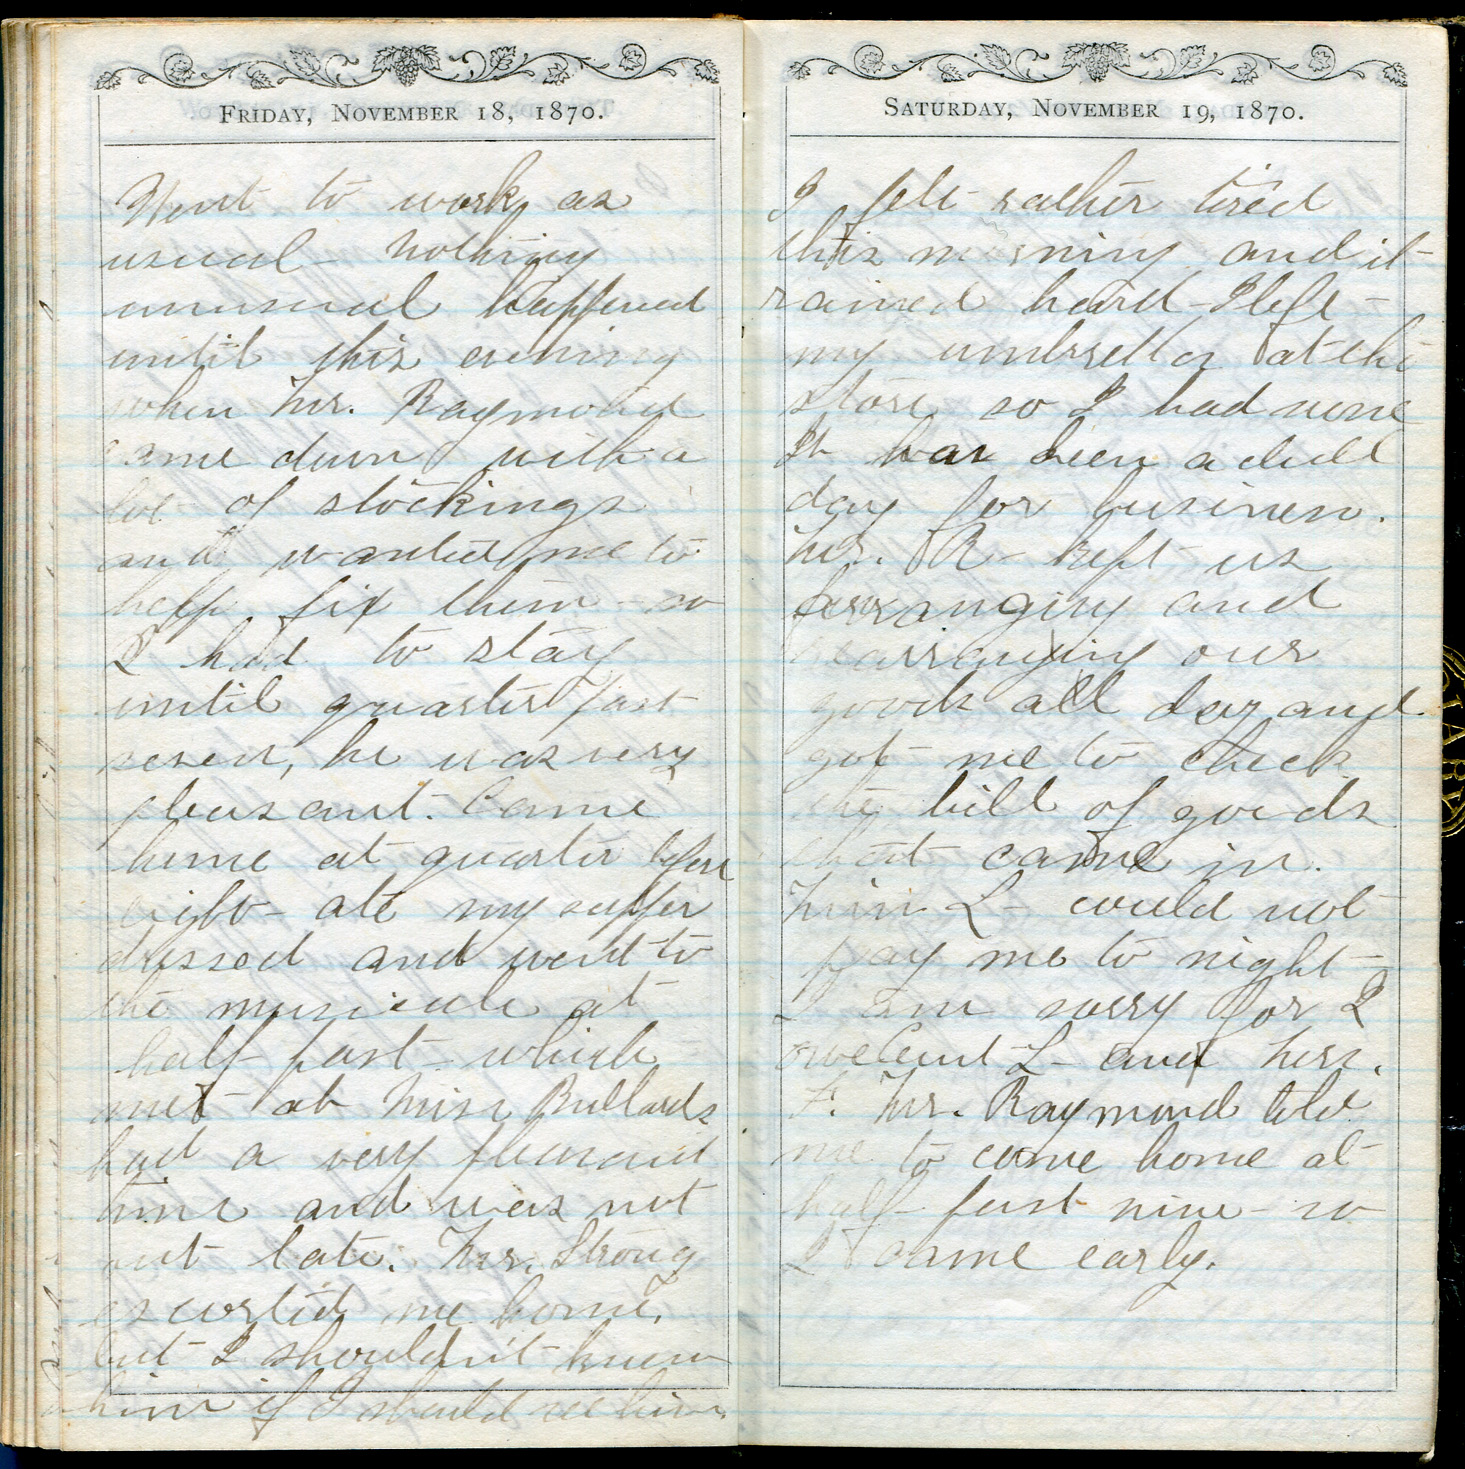 FRIDAY, NOVEMBER 18, 1870.
Went to work as
usual - nothing
unusual happened
until this evening
when Mr. Raymond
came down with a
lot of stockings
and wanted me to
help fix them - so
I had to stay
until quarter past
seven, he was very
pleasant. Came
home at quarter before
eight - ate my supper
dressed and went to
the musicale at
half past - which
met at Miss Bullards
had a very pleasant
time and was not
out late. Mr. Strong
escorted me home,
but I shouldn't know
him if I should see him.
SATURDAY, NOVEMBER 19, 1870.
I felt rather tired
this morning and it
rained hard - I left
my umbrella at the
store so I had none
It has been a dull
day for business.
Mr. R - kept us
arranging and
rearranging our
goods all day and
got me to check
the bill of goods
that came in.
Miss L - could not
pay me to night -
I am sorry for I
owe Aunt L - and Mrs.
F. Mr. Raymond told
me to come home at
half past nine - so
I came early.